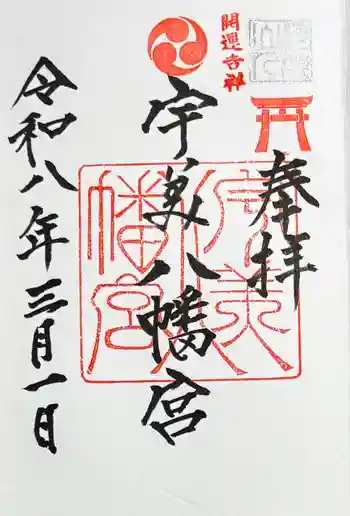 奉拝
開運吉祥
宇美八幡宮
宇美八幡宮
令和八年三月一日